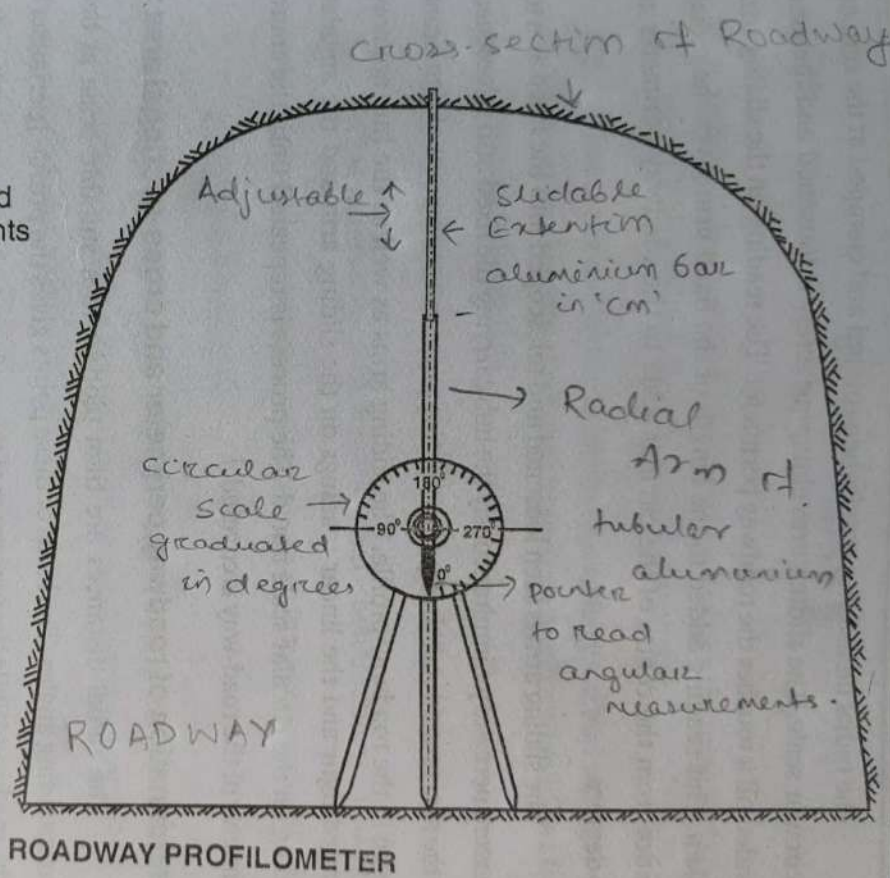 Cross-section of Roadway
d
nts
Adjustable
Slidable
Extention
aluminium bar
in 'cm'
Radial
Arm of
tubular
alumunium
circular
scale
graduated
in degrees
180°
90°
270°
0°
pointer
to read
angular
measurements.
ROADWAY
ROADWAY PROFILOMETER